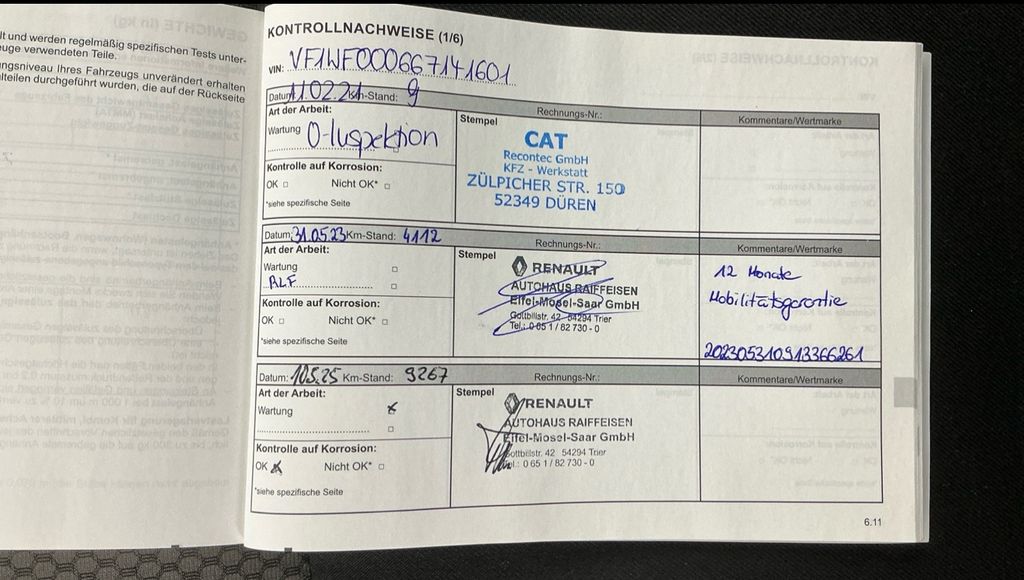 lt und werden regelmäßig spezifischen Tests unter-
euge verwendeten Teile.
ngsniveau Ihres Fahrzeugs unverändert erhalten
lteilen durchgeführt wurden, die auf der Rückseite
KONTROLLNACHWEISE (1/6)
VIN: VF1WF000667141601
Datum: 11.02.21 Km-Stand: 9 Rechnungs-Nr.: Kommentare/Wertmarke
Art der Arbeit: Stempel
Wartung O-Inspektion
Kontrolle auf Korrosion:
OK Nicht OK*
*siehe spezifische Seite
CAT
Recontec GmbH
KFZ - Werkstatt
ZÜLPICHER STR. 150
52349 DÜREN
Datum: 31.05.23 Km-Stand: 4112 Rechnungs-Nr.: Kommentare/Wertmarke
Art der Arbeit: Stempel
Wartung
ALF
Kontrolle auf Korrosion:
OK Nicht OK*
*siehe spezifische Seite
RENAULT
AUTOHAUS RAIFFEISEN
Eifel-Mosel-Saar GmbH
Gottbillstr. 42 54294 Trier
Tel.: 0 65 1 / 82 730 - 0
12 Monate
Mobilitätsgarantie
20230531091336 6261
Datum: 10.5.25 Km-Stand: 9267 Rechnungs-Nr.: Kommentare/Wertmarke
Art der Arbeit: Stempel
Wartung x
Kontrolle auf Korrosion:
OK x Nicht OK*
*siehe spezifische Seite
RENAULT
AUTOHAUS RAIFFEISEN
Eifel-Mosel-Saar GmbH
Gottbillstr. 42 54294 Trier
Tel.: 0 65 1 / 82 730 - 0
6.11